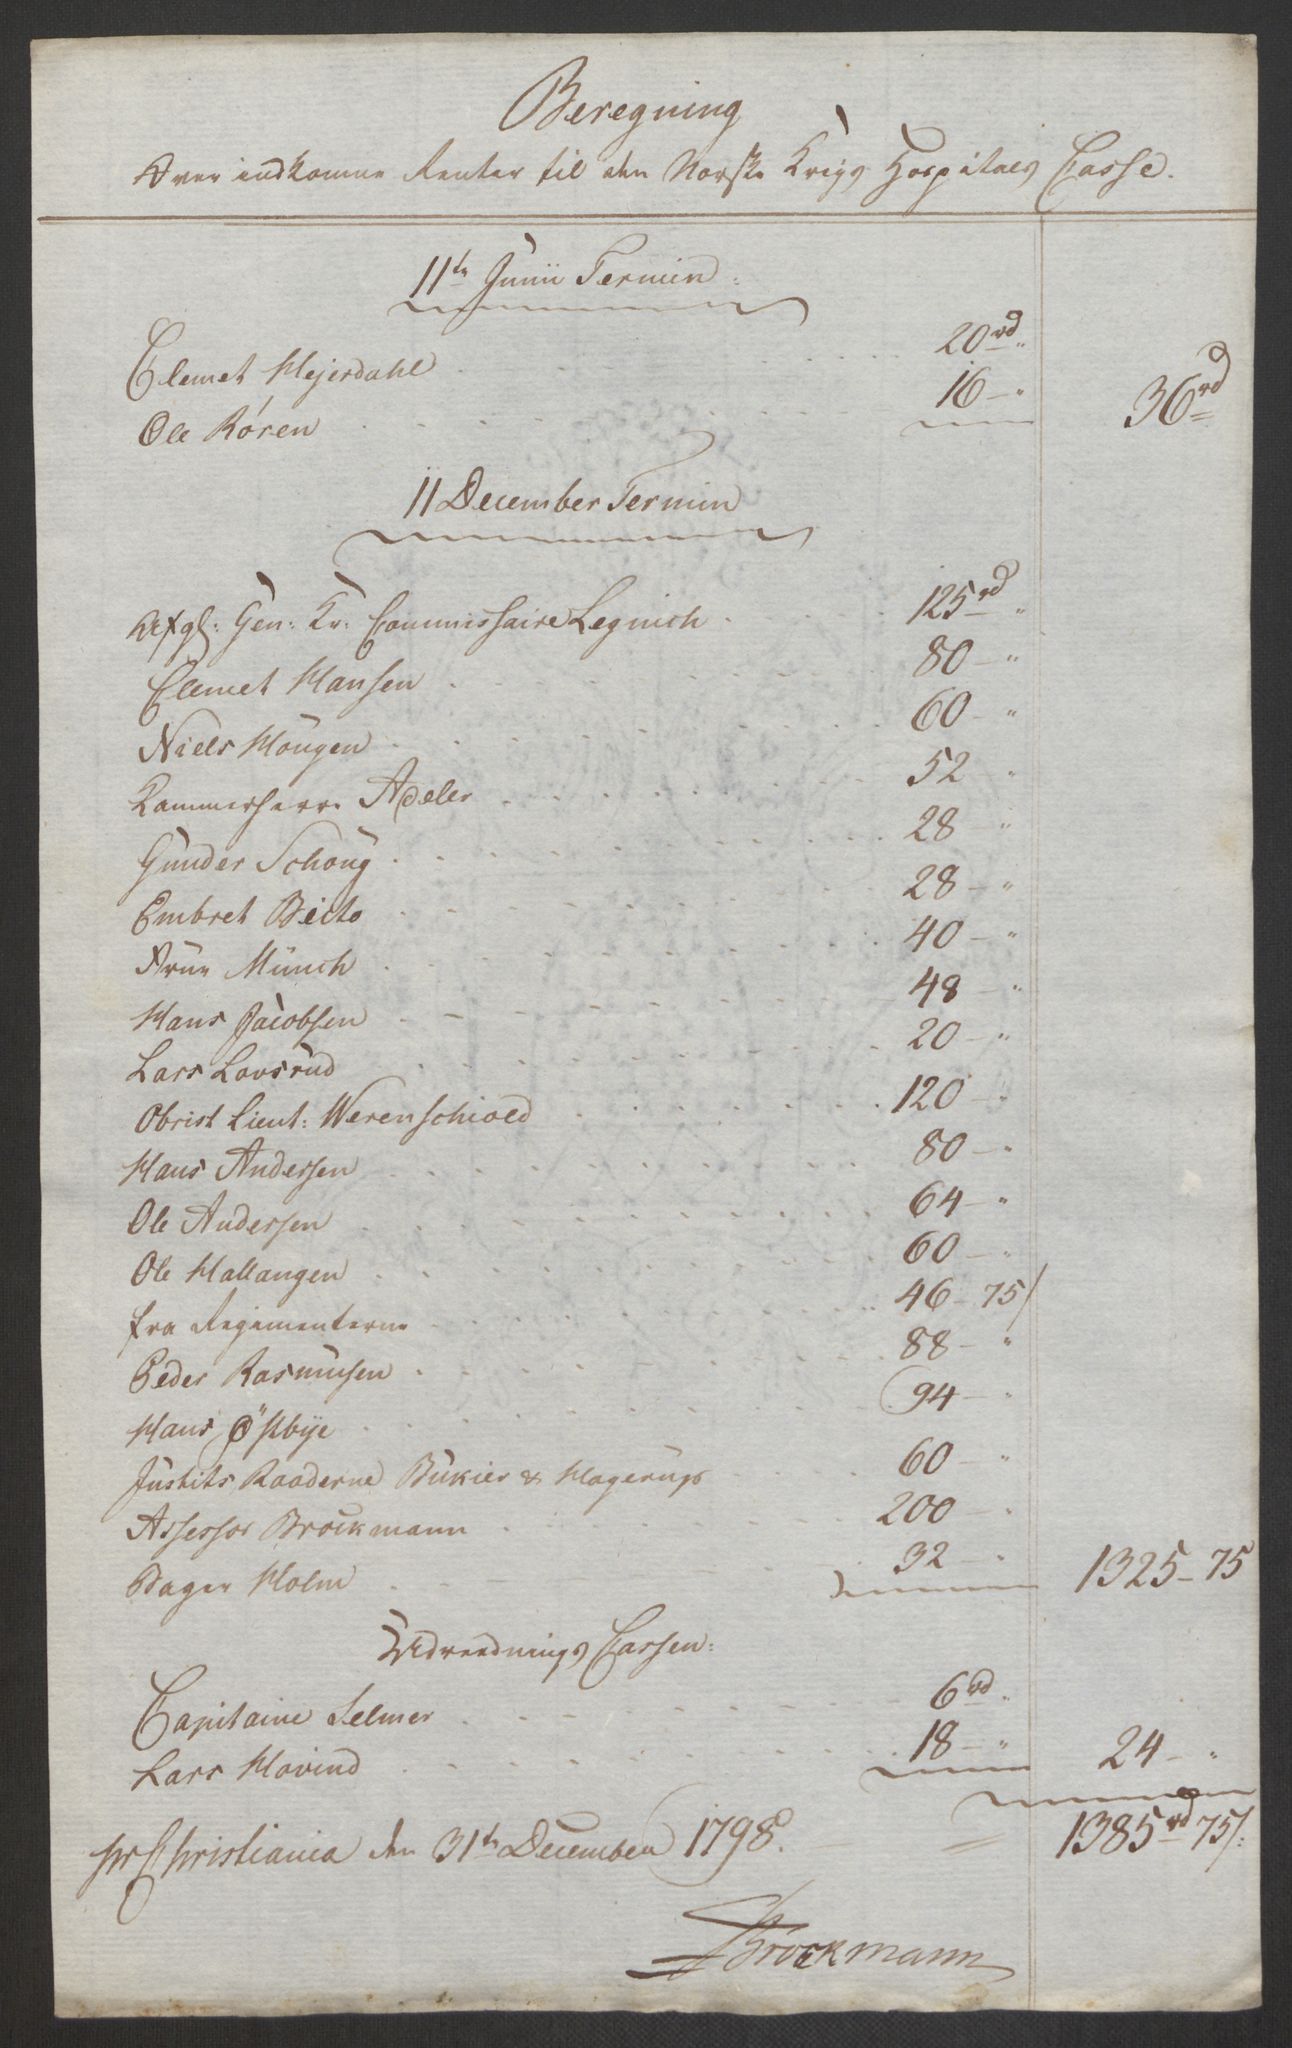 Beregning
Over indkomne Renter til den Norske Krigs Hospitals Casse.
11te Junii Termin:
Clemet Mejerdahl 20rd "
Ole Røren 16 - " 36rd
11 December Termin
Afgl: Gen: Kr: Commissaire Legnich 125rd "
Clemet Hansen 80 - "
Niels Hougen 60 - "
Kammerherre Adeler 52 - "
Gunder Schoug 28 - "
Embret Beito 28 - "
Frue Münch 40 - "
Hans Jacobsen 48 - "
Lars Lovsrud 20 - "
Obrist Lieut: Werenschiold 120 - "
Hans Andersen 80 - "
Ole Andersen 64 - "
Ole Hallangen 60 - "
fra Regimenterne 46 - 75/
Peder Rasmusen 88 - "
Hans Østbye 94 - "
Justits Raaderne Bukier & Hagerups 60 - "
Assessor Brockmann 200 - "
Bager Holm 32 - " 1325 - 75
Udrednings Cassen:
Capitaine Selmer 6rd "
Lars Hovind 18 - " 24 - "
Christiania den 31te December 1798. 1385rd 75/:
Brockmann